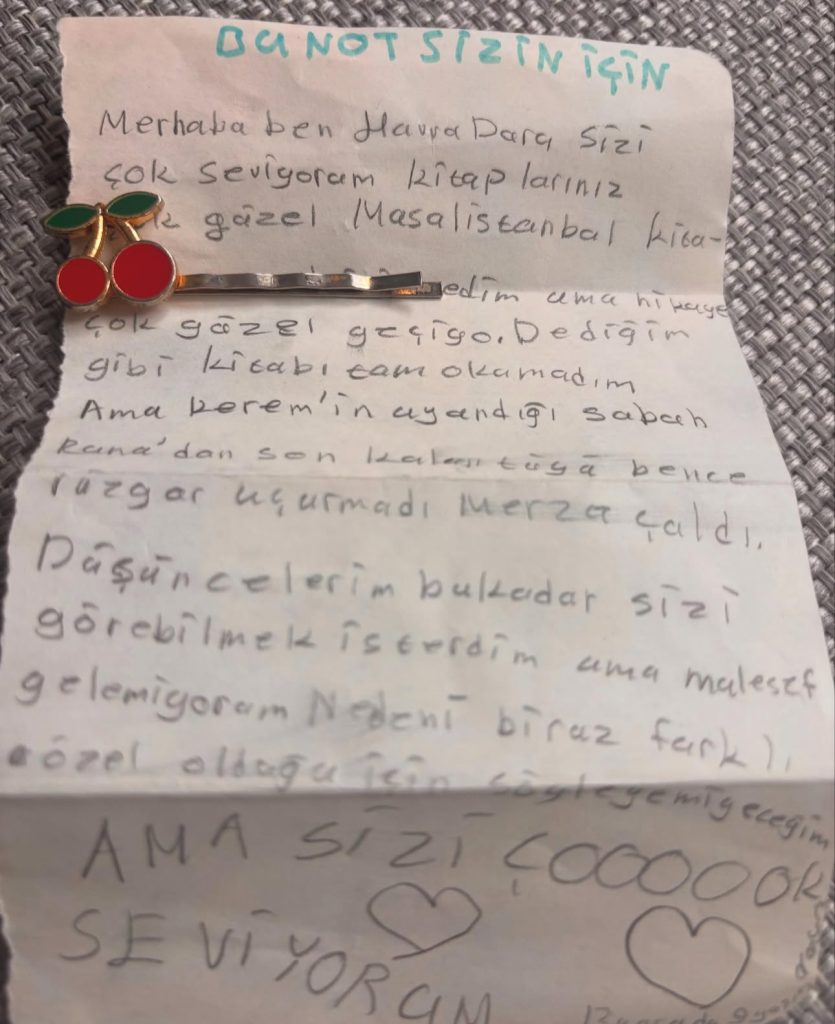 BU NOT SİZİN İÇİN
Merhaba ben Havva Dara sizi
çok seviyoram kitaplarınız
güzel Masalistanbul kita-
edim ama hikaye
çok güzel geçiyo. Dediğim
gibi kitabı tam okumadım
Ama kerem'in uyandığı sabah
Rana'dan son kalan tüyü bence
rüzgar uçurmadı Merza çaldı.
Düşüncelerim bukadar sizi
görebilmek isterdim ama malesef
gelemiyorum Nedeni biraz farklı,
özel olduğu için söyleyemiyeceğim
AMA SİZİ ÇOOOOOK
SEVİYORUM